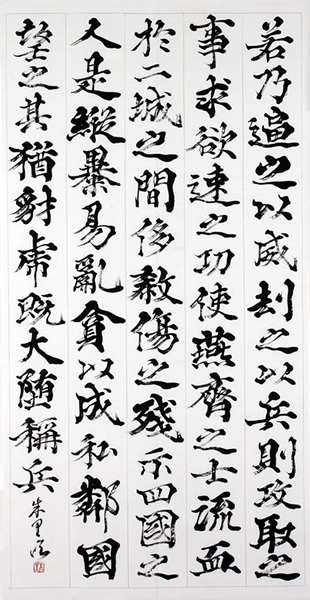 若乃逼之以威刦之以兵則攻取之
事求欲速之功使燕齊之士流血
於二城之間侈殺傷之殘示四國之
人是縱暴易亂貪以成私鄰國
望之其猶豺虎既大墮稱兵